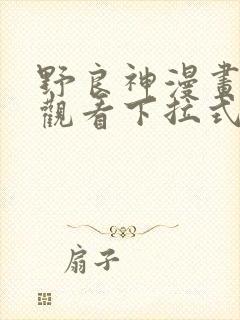 野良神漫畫
觀看下拉式
扇子